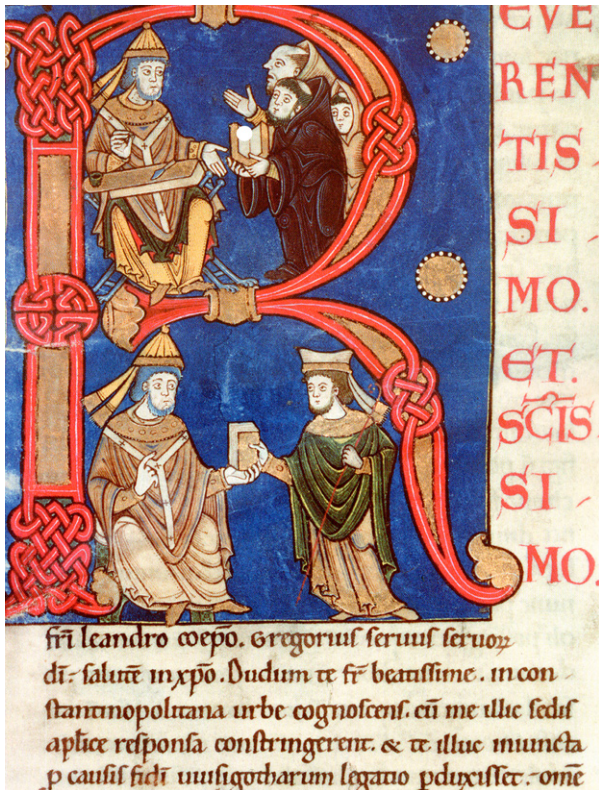 EVE
REN
TIS
SI
MO.
ET.
SC̄IS
SI
MO.
fr̄i leandro coep̄o. Gregorius seruus seruoꝝ
dī. salutē in xp̄o. Dudum te fr̄ beatissime. in con
stantinopolitana urbe cognoscens. cū me illic sedis
ap̄lice responsa constringerent. & te illuc iniuncta
p causis fidēi uuisigotharum legatio pduxisset. omē